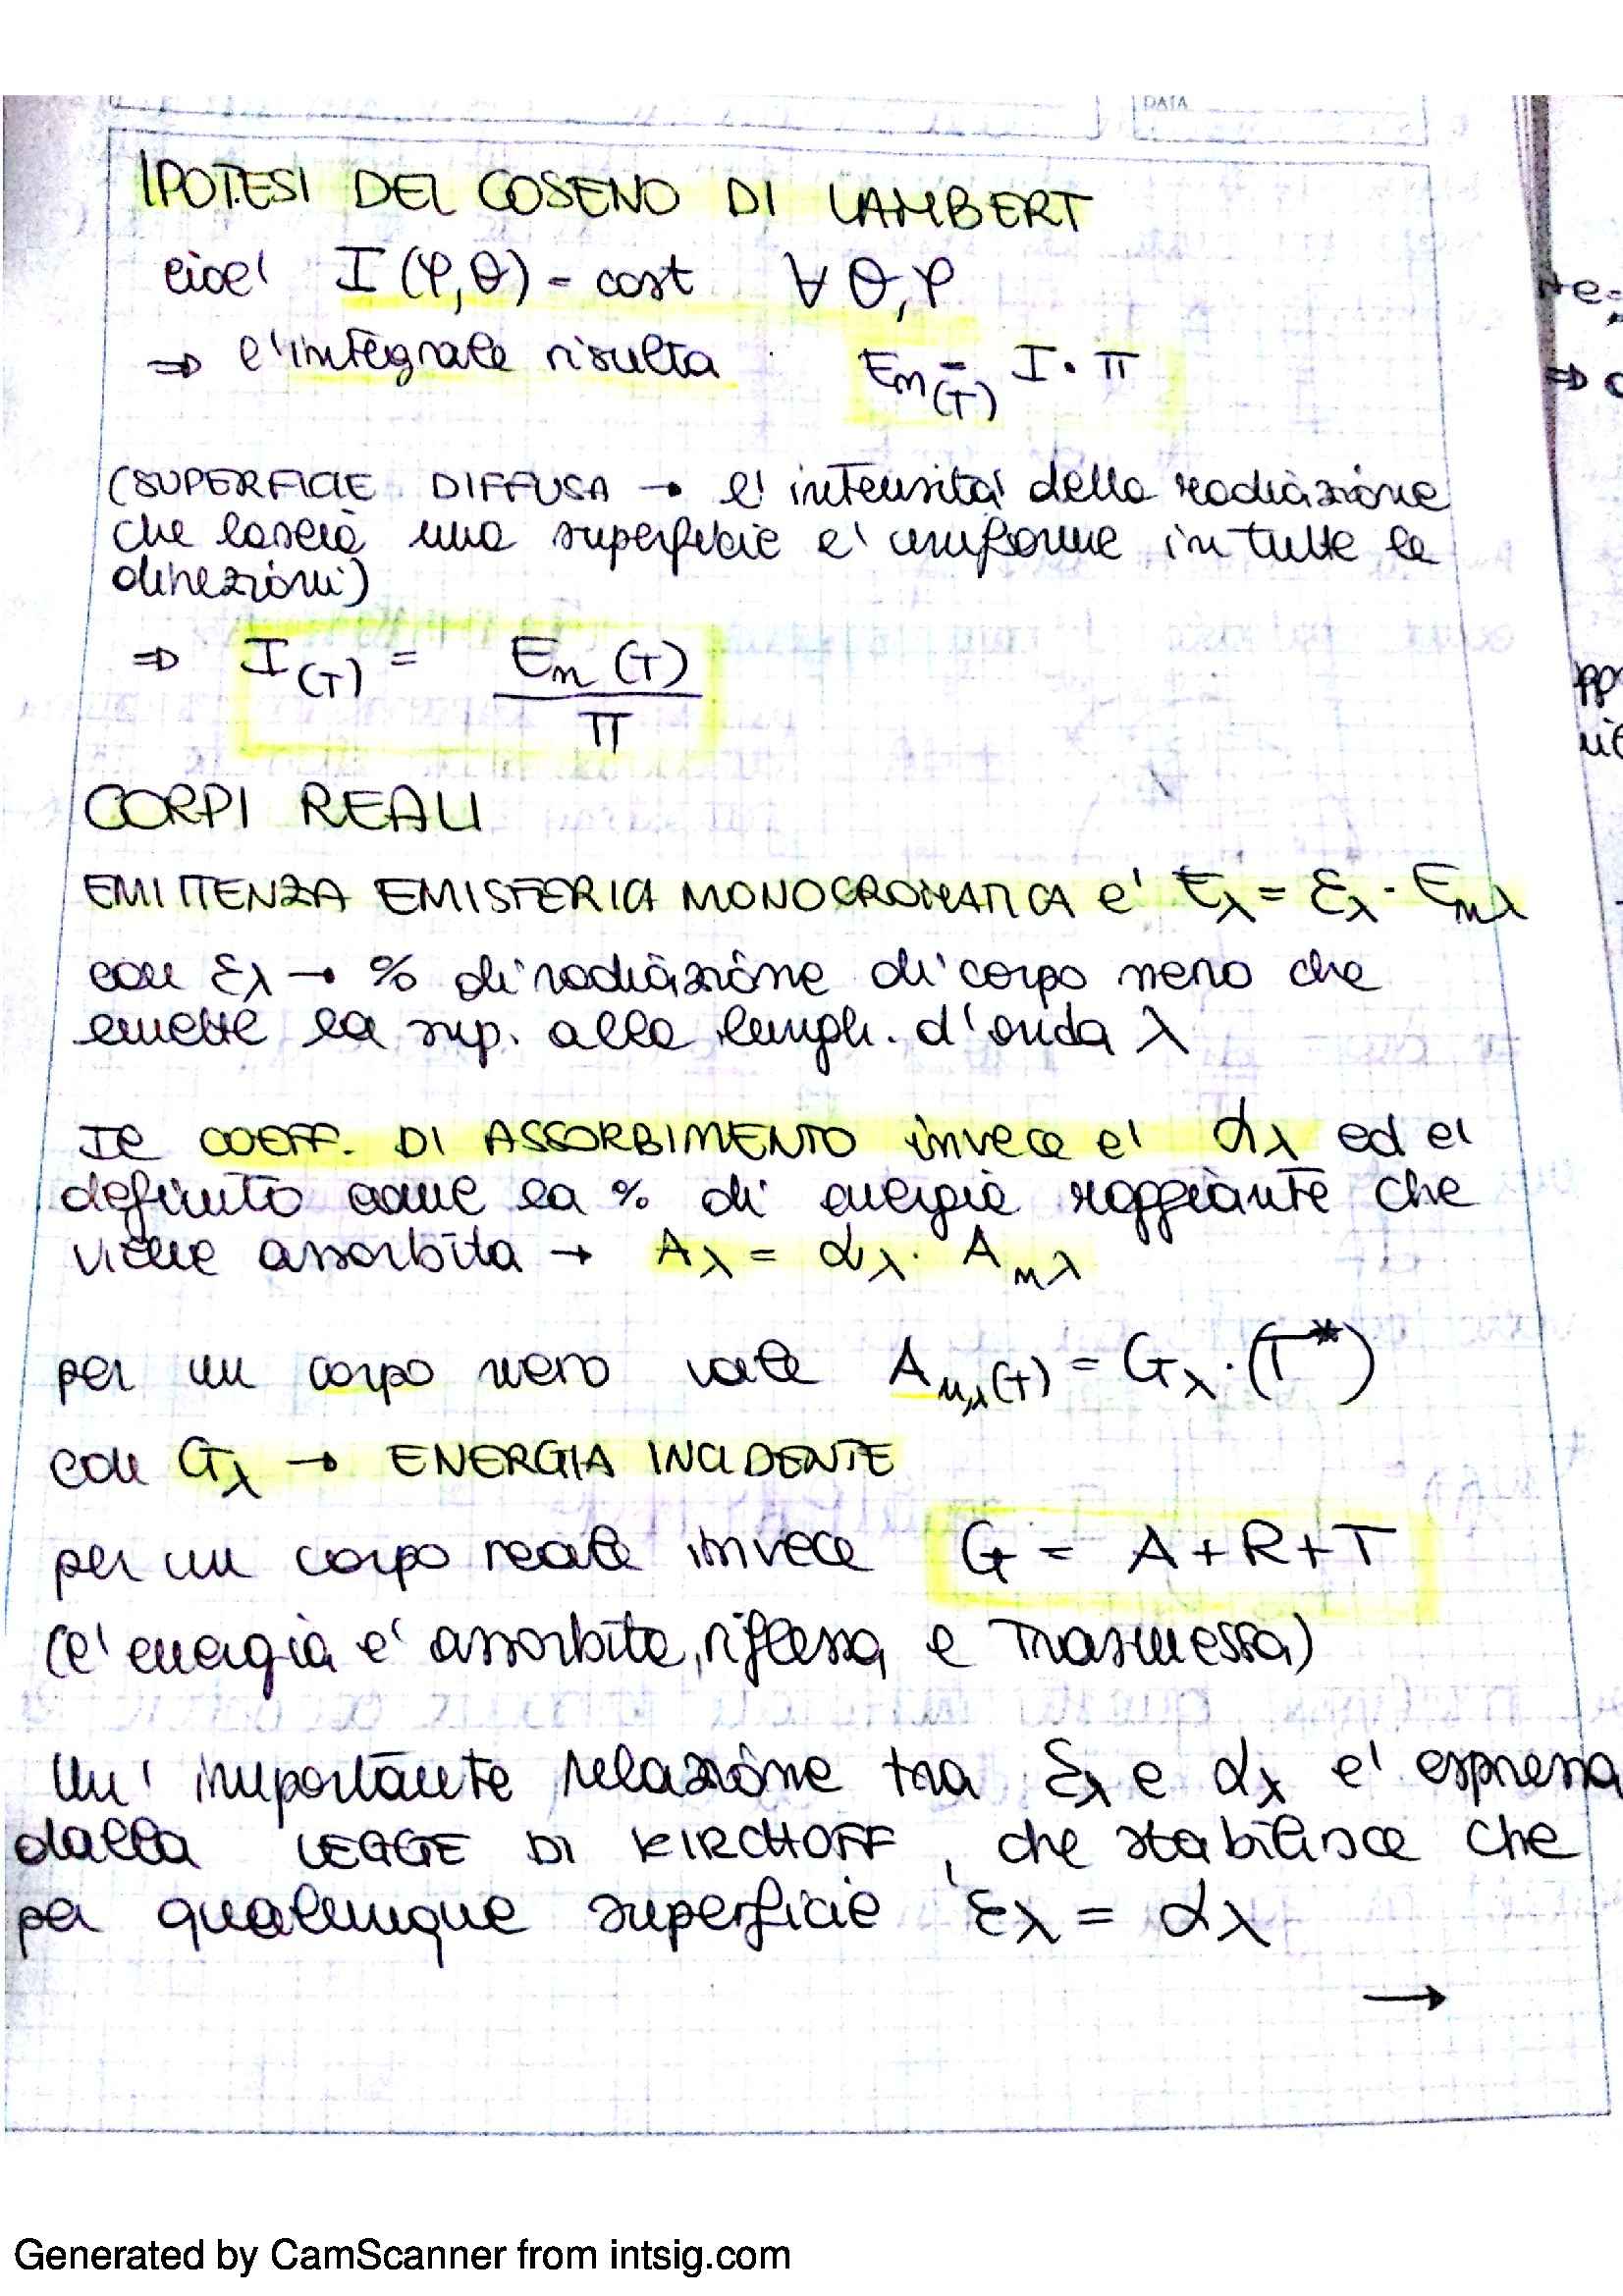 DATA
IPOTESI DEL COSENO DI LAMBERT
cioe' I (φ,θ) = cost ∀ θ,φ
⇒ l'integrale risulta En(T) = I · π
(SUPERFICIE DIFFUSA → l'intensita' della radiazione
che lascia una superficie e' uniforme in tutte le
direzioni)
⇒ I(T) = En (T) / π
CORPI REALI
EMITTENZA EMISFERICA MONOCROMATICA e' Eλ = ελ · Enλ
con ελ → % di radiazione di corpo nero che
emette la sup. alla lungh. d'onda λ
Il COEFF. DI ASSORBIMENTO invece e' αλ ed e'
definito come la % di energia raggiante che
viene assorbita → Aλ = αλ · Anλ
per un corpo nero vale An,λ(T) = Gλ · (T*)
con Gλ → ENERGIA INCIDENTE
per un corpo reale invece G = A+R+T
(l'energia e' assorbita, riflessa e trasmessa)
Un' importante relazione tra ελ e αλ e' espressa
dalla LEGGE DI KIRCHOFF, che stabilisce che
per qualunque superficie ελ = αλ
→
Generated by CamScanner from intsig.com